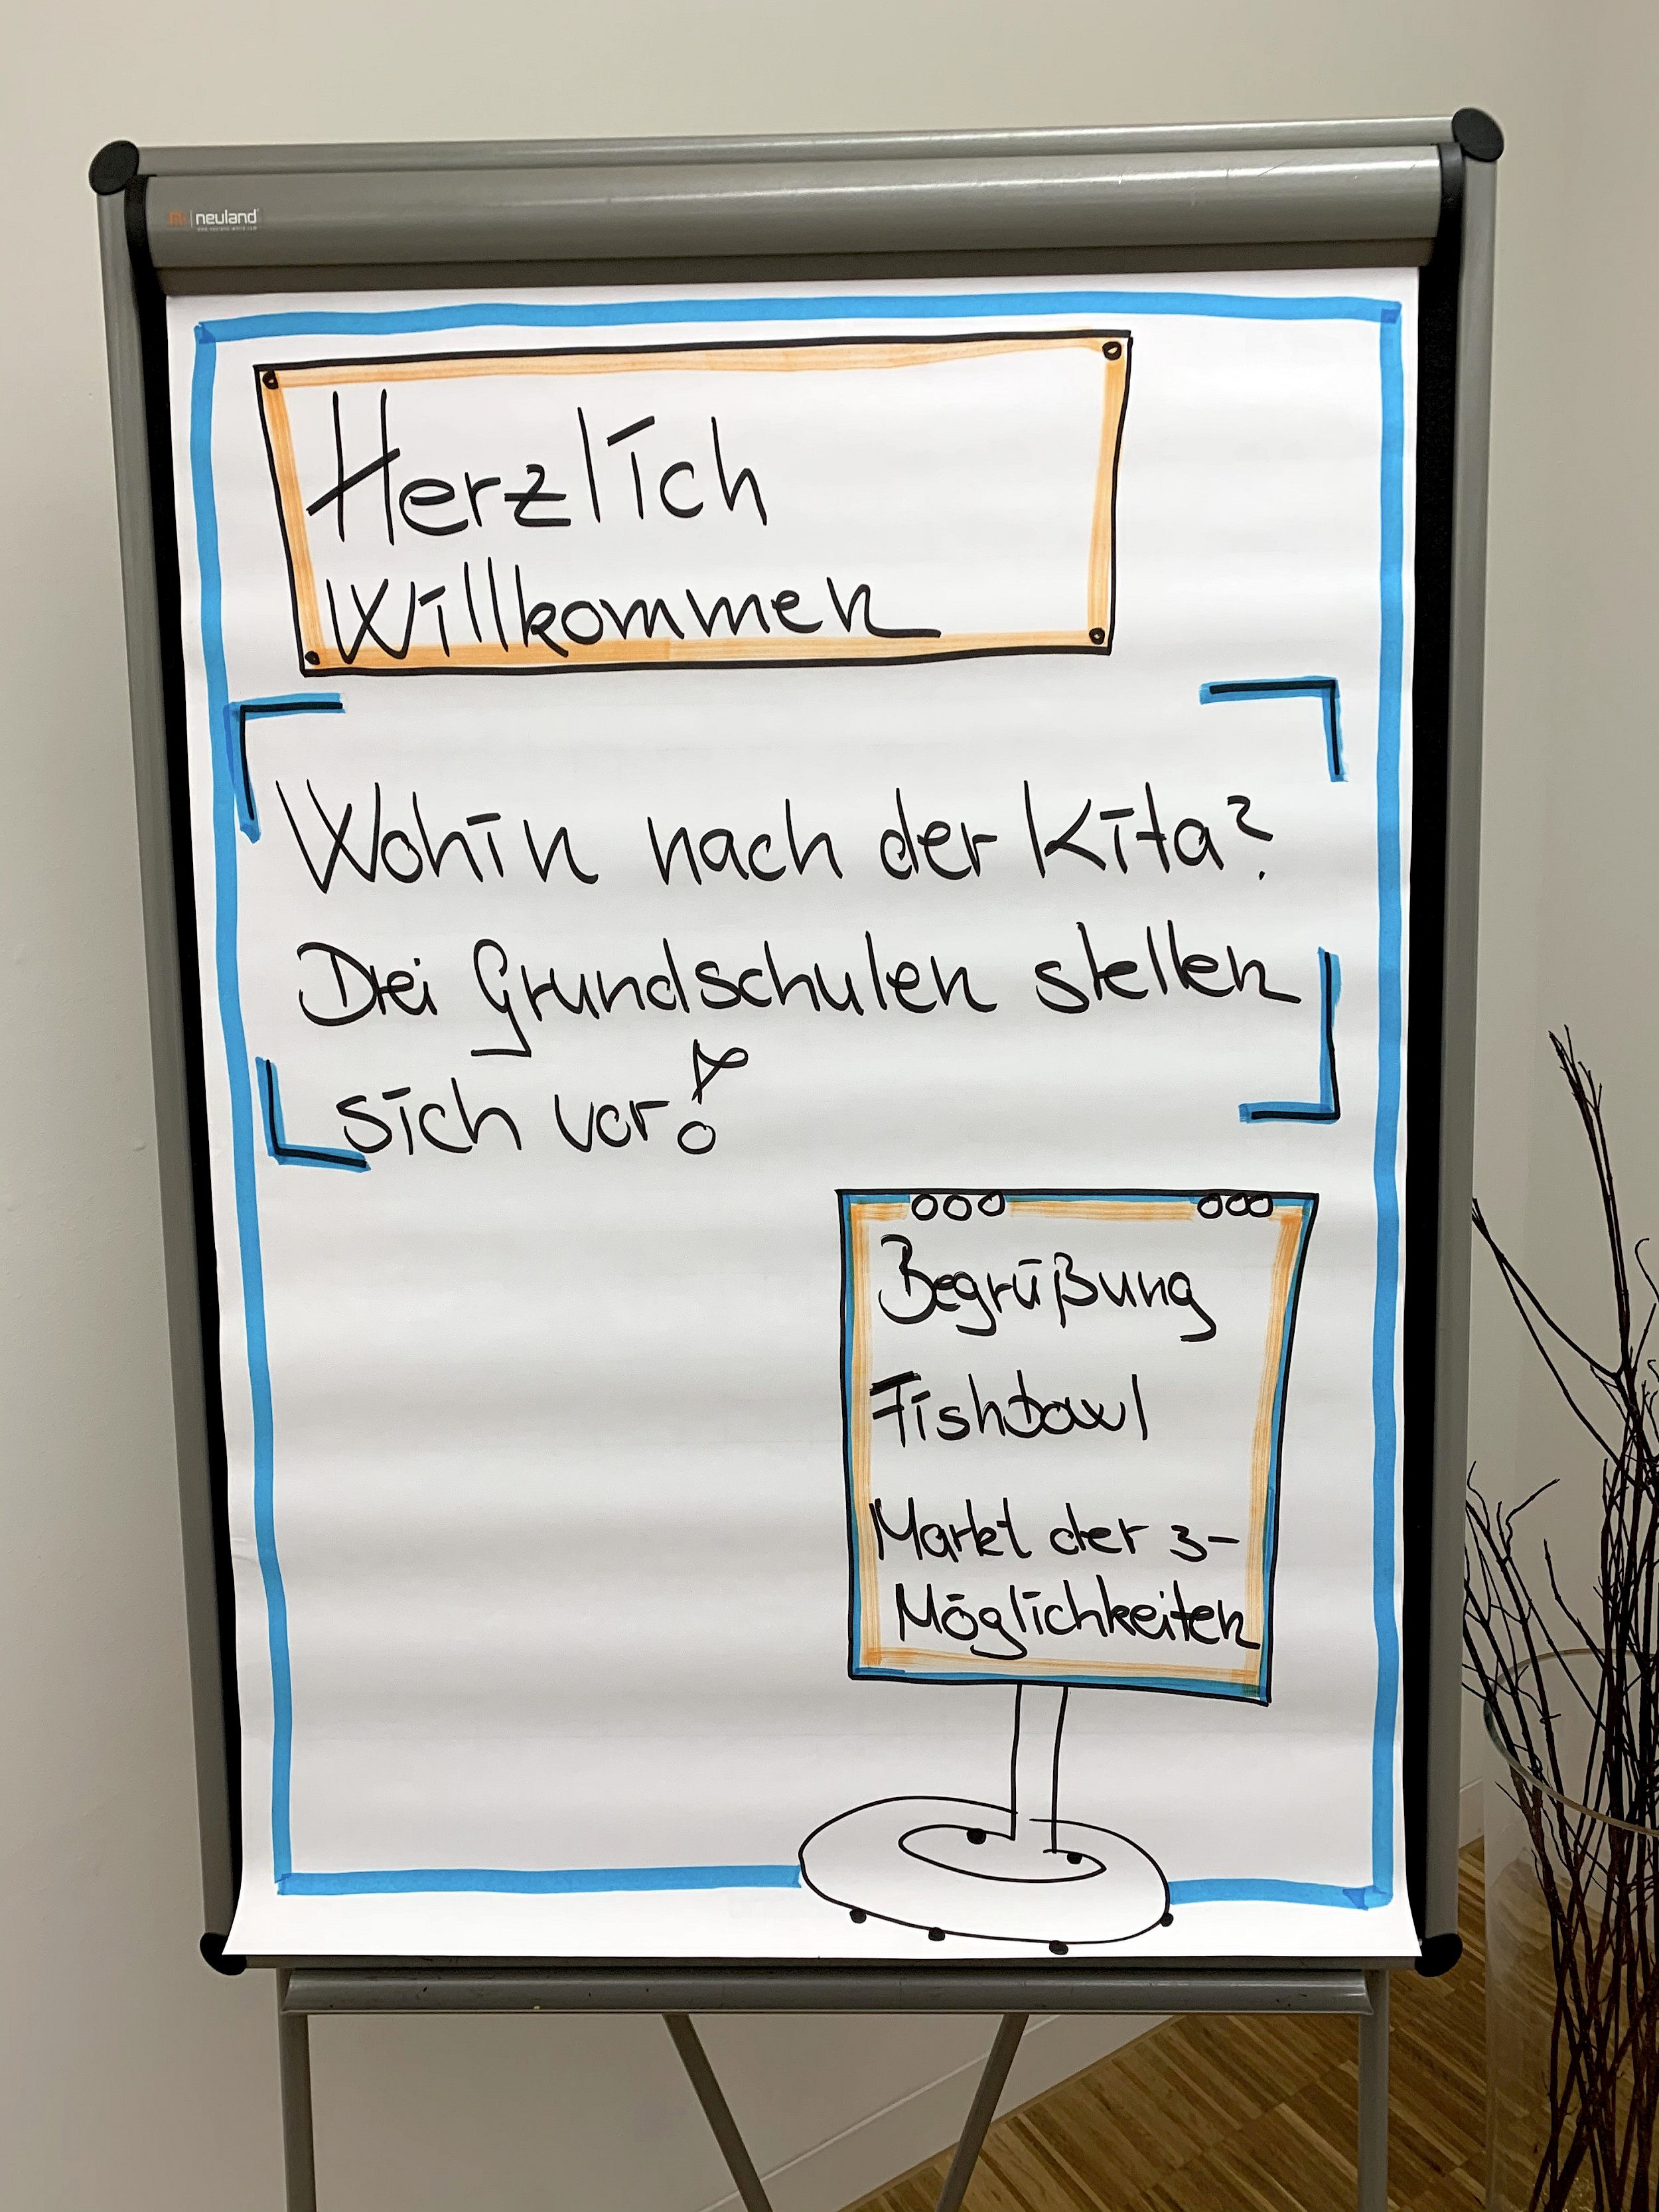 neuland
Herzlich
Willkommen
Wohin nach der Kita?
Drei Grundschulen stellen
sich vor!
Begrüßung
Fishbowl
Markt der 3-
Möglichkeiten